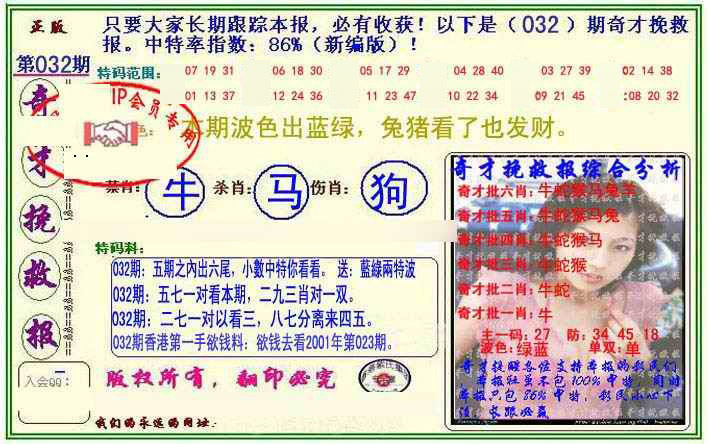 正版
只要大家长期跟踪本报，必有收获！以下是（032）期奇才挽救
报。中特率指数：86%（新编版）！
第032期
特码范围：
07 19 31 06 18 30 05 17 29 04 28 40 03 27 39 02 14 38
01 13 37 12 24 36 11 23 47 10 22 34 09 21 45 :08 20 32
IP会员专用
色：本期波色出蓝绿，兔猪看了也发财。
奇
才
挽
救
报
禁肖：牛 杀肖：马 伤肖：狗
特码料：
032期：五期之內出六尾，小數中特你看看。 送：藍綠兩特波
032期：五七一对看本期，二九三肖对一双。
032期：二七一对以看三，八七分离来四五。
032期香港第一手欲钱料：欲钱去看2001年第023期。
版权所有，翻印必究
入会QQ：
我们的永远的网址：
奇才挽救报综合分析
奇才批六肖：牛蛇猴马兔羊
奇才批五肖：牛蛇猴马兔
奇才批四肖：牛蛇猴马
奇才批三肖：牛蛇猴
奇才批二肖：牛蛇
奇才批一肖：牛
主一码：27 防：34 45 18
波色：绿蓝 单双：单
奇才提醒各位支持本报的彩民们
本报杜虽不包100%中特，同时
本报只包86%中特，彩民小心下
注，求跟必赢